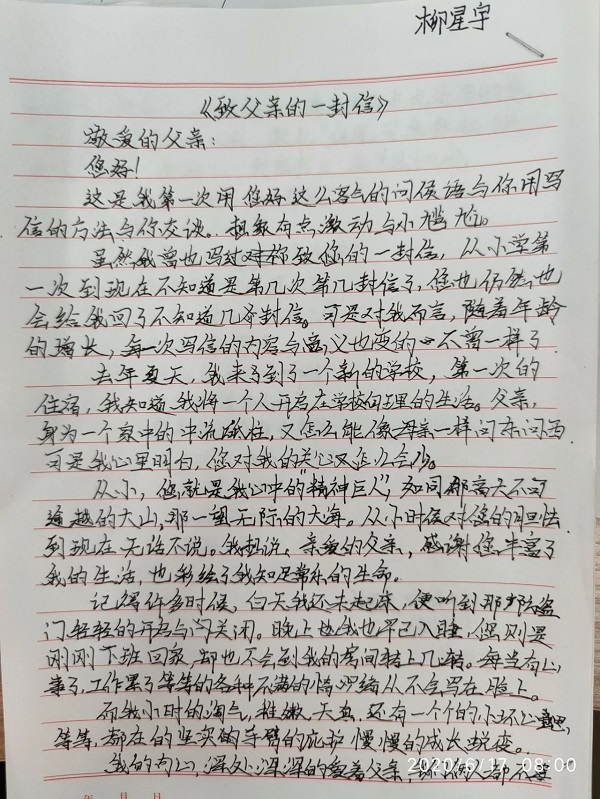 柳星宇
《致父亲的一封信》
敬爱的父亲：
您好！
这是我第一次用您好这么客气的问侯语与你用写
信的方法与你交谈。想想有点激动与小尴尬。
虽然我曾也写过对你致您的一封信，从小学第
一次到现在不知道是第几次第几封信了，您也仍然也
会给我回了不知道几条封信。可是对我而言，随着年龄
的增长，每一次写信的内容与意义也变的不曾一样了
去年夏天，我来了到了一个新的学校，第一次的
住宿，我知道我将一个人开启在学校自理的生活。父亲，
身为一个家中的中流砥柱，又怎么能像母亲一样问东问西
可是我心里明白，你对我的关心又怎么会少。
从小，您就是我心中的"精神巨人"，如同那高大不可
逾越的大山，那一望无际的大海。从小时侯对您的胆怯
到现在无话不说。我想说，亲爱的父亲，感谢您丰富了
我的生活，也彩绘了我知足常乐的生命。
记得许多时候，白天我还未起床，便听到那防盗
门轻轻的开启与闭关闭。晚上我也早已入睡，您则是
刚刚下班回家，却也不会到我的房间转上几转。每当有心
事了，工作累了等等的各种不满的情绪从不会写在脸上。
而我小时的淘气，稚嫩，天真，还有一个个的小坏心
等等，都在的坚实的手臂的庇护慢慢的成长蜕变。
我的内心，深处深深的爱着父亲，
2020/6/17 08:00
年 月 日